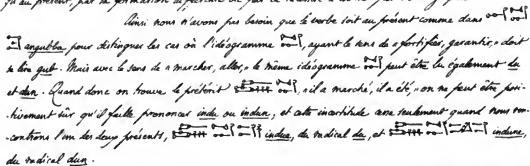 Ainsi nous n'avons pas besoin que le verbe soit au présent comme dans
angubba, pour distinguer les cas où l'idéogramme , ayant le sens de « fortifier, garantir, » doit
se lire gub. Mais avec le sens de « marcher, aller, » le même idéogramme peut être lu également du
et dun. Quand donc on trouve le prétérit , « il a marché, il a été, » on ne peut être posi-
tivement sûr qu'il faille prononcer indu ou indun, et cette incertitude cesse seulement quand nous ren-
controns l'un des deux présents, indue, du radical du, et indune,
du radical dun.